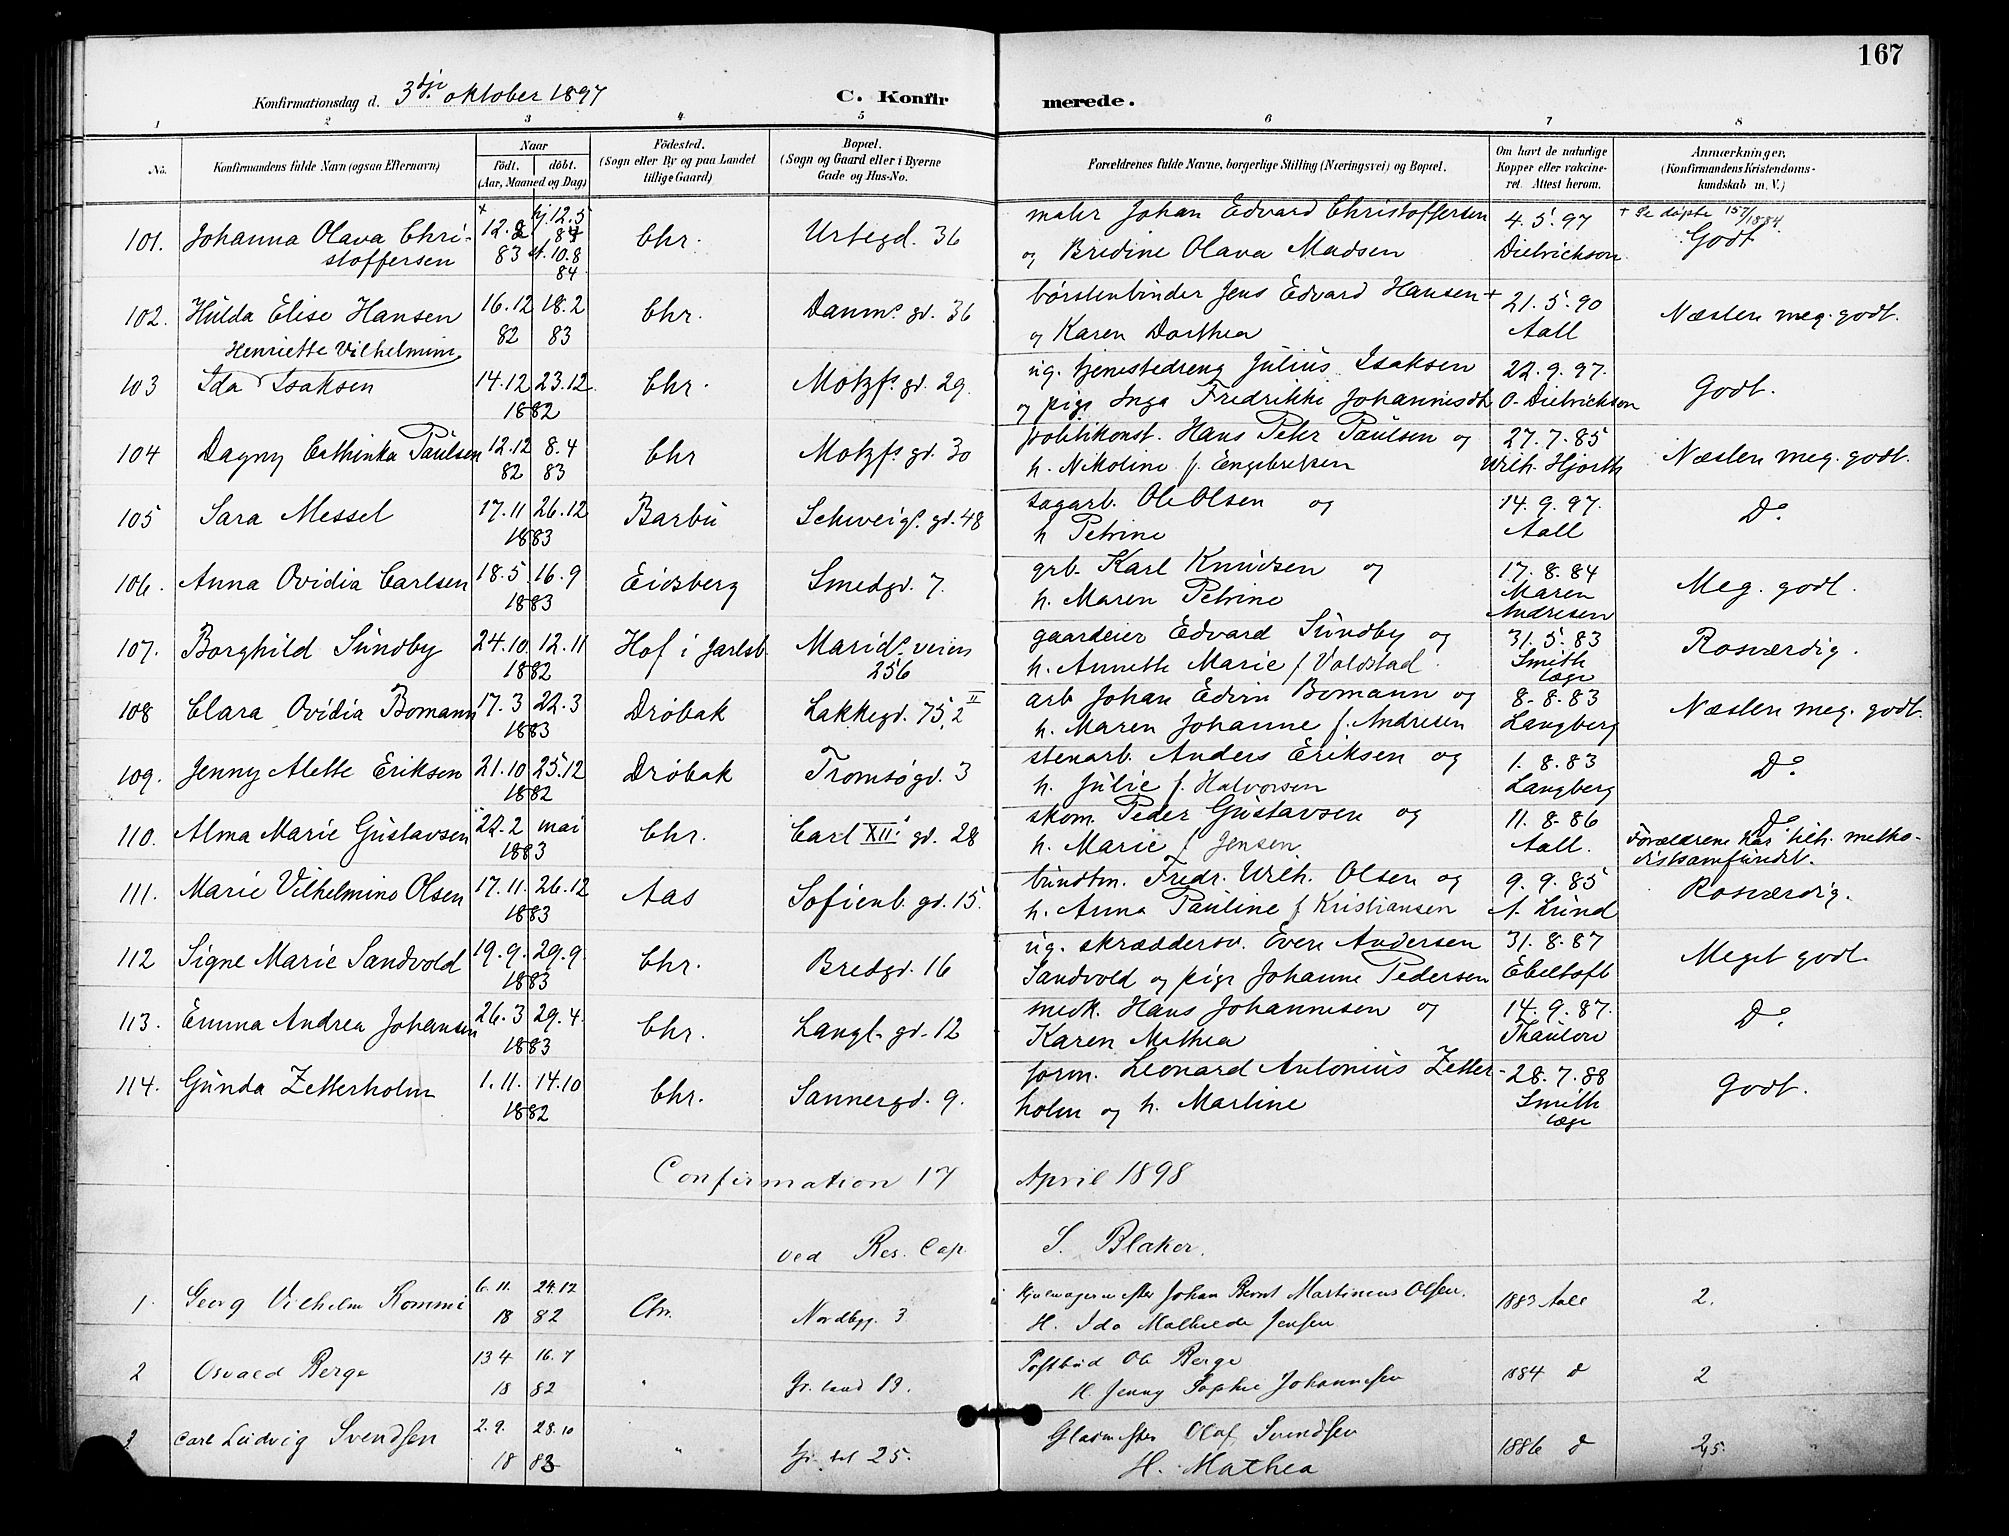 167
Konfirmationsdag d. 3dje oktober 1897
C. Konfirmerede.
1 2 3 4 5 6 7 8
No. Konfirmandens fulde Navn (ogsaa Efternavn) Naar födt. döbt. (Aar, Maaned og Dag) Födested. (Sogn eller By og paa Landet tillige Gaard) Bopæl. (Sogn og Gaard eller i Byerne Gade og Hus-No. Forældrenes fulde Navne, borgerlige Stilling (Næringsvei) og Bopæl. Om havt de naturlige Kopper eller vakcineret. Attest herom. Anmærkninger, (Konfirmandens Kristendomskundskab m. V.)
101. Johanna Olava Christoffersen + 12.2 83 hj. 12.5 84 st. 10.8 84 Chr. Urtegd. 36 maler Johan Edvard Christoffersen og Bredine Olava Madsen 4.5.97 Dietrichson + Se döpte 157/1884. Godt
102. Hulda Elise Hansen 16.12 82 18.2 83 Chr. Danms. gd. 36 börstenbinder Jens Edvard Hansen + og Karen Dorthea 21.5.90 Aall Næsten meg. godt.
103 Ida Henriette Vilhelmine Isaksen 14.12 23.12. 1882 Chr. Motzfs. gd. 29. ug. tjenestedreng Julius Isaksen og pige Inga Fredrikke Johannesdt. 22.9.97. O. Dietrichson Godt.
104 Dagny Cathinka Paulsen 12.12 82 8.4 83 Chr Motzfs gd. 30 politikonst. Hans Peter Paulsen og h. Nikoline f. Engebretsen 27.7.85 Wilh. Hjorth Næsten meg. godt.
105 Sara Messel 17.11 26.12 1883 Barbu Schweigs. gd. 48 sagarb. Ole Olsen og h Petrine 14.9.97. Aall Do
106. Anna Ovidia Carlsen 18.5 16.9 1883 Eidsberg Smedgd. 7. grb. Karl Knudsen og h. Maren Petrine 17.8.84 Maren Andresen Meg. godt.
107. Borghild Sundby 24.10 12.11 1882 Hof i Jarlsb. Marids. veien 256 gaardeier Edvard Sundby og h. Annette Marie f Voldstad. 31.5.83 Smith læge Rosværdig.
108 Clara Ovidia Bomann 17.3 22.3 1883 Dröbak Lakkegd. 75, 2 II arb Johan Edvin Bomann og h. Maren Johanne f. Andresen 8.8.83 Langberg Næsten meg. godt.
109. Jenny Alette Eriksen 21.10 25.12 1882 Dröbak Tromsögd. 3 stenarb. Anders Eriksen og h. Julie f. Halvorsen 1.8.83 Langberg Do
110. Alma Marie Gustavsen 22.2 mai 1883 Chr. Carl XII.s gd. 28 skom. Peder Gustavsen og h. Marie f Jensen 11.8.86 Aall. Do Forældrene har tilh. methodistsamfundet.
111. Marie Vilhelmine Olsen 17.11. 26.12 1883 Aas Sofienb. gd. 15. bundtm. Fredr. Wilh. Olsen og h. Anna Pauline f Kristiansen 9.9.85 A. Lund Rosværdig.
112 Signe Marie Sandvold 19.9. 29.9. 1883 Chr. Bredgd. 16 ug. skræddersv. Even Andersen Sandvold og pige Johanne Pedersen 31.8.87 Ebeltoft Meget godt
113. Emma Andrea Johansen 26.3 29.4. 1883 Chr. Langl. gd. 12 mek. Hans Johannesen og Karen Mathea 14.9.87. Thaulow Do
114. Gunda Zetterholm 1.11. 14.10 1882 Chr. Sannergd. 9. form. Leonard Antonius Zetterholm og h. Martine 28.7.88 Smith læge Godt.
Confirmation 17 April 1898
ved Res. Cap. S. Blaker.
1. Georg Vilhelm Komme 6.11. 24.12 1882 Chr. Nordbyg. 3 Johan Bernt Martinius Olsen. H. Ida Mathilde Jensen 1883 Aall 2.
2 Osvald Berge 13 4 16.7 1882 " Gr. land 19. Postbud Ole Berge H. Jenny Sophie Johannesen 1884 d 2
3 Carl Ludvig Svendsen 2.9. 28.10 1883 " 25. Glasmester Olaf Svendsen H. Mathea 1886 d 2,5.